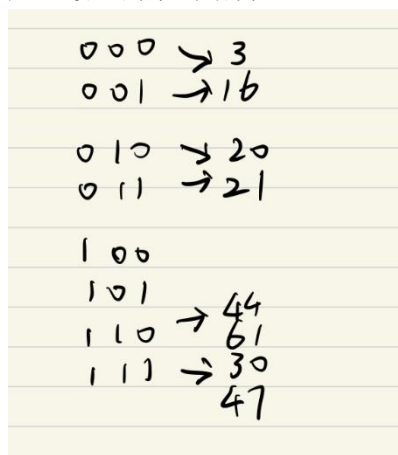 000 → 3
001 → 16
010 → 20
011 → 21
100
101
110 → 44
61
111 → 30
47